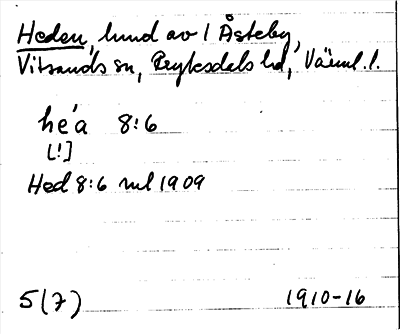 Heden, hmd av 1 Åsteby,
Vitsands sn, Fryksdals hd, Värml. l.
he´a 8:6
[!]
Hed 8:6 ml 1909
5(7) 1910-16